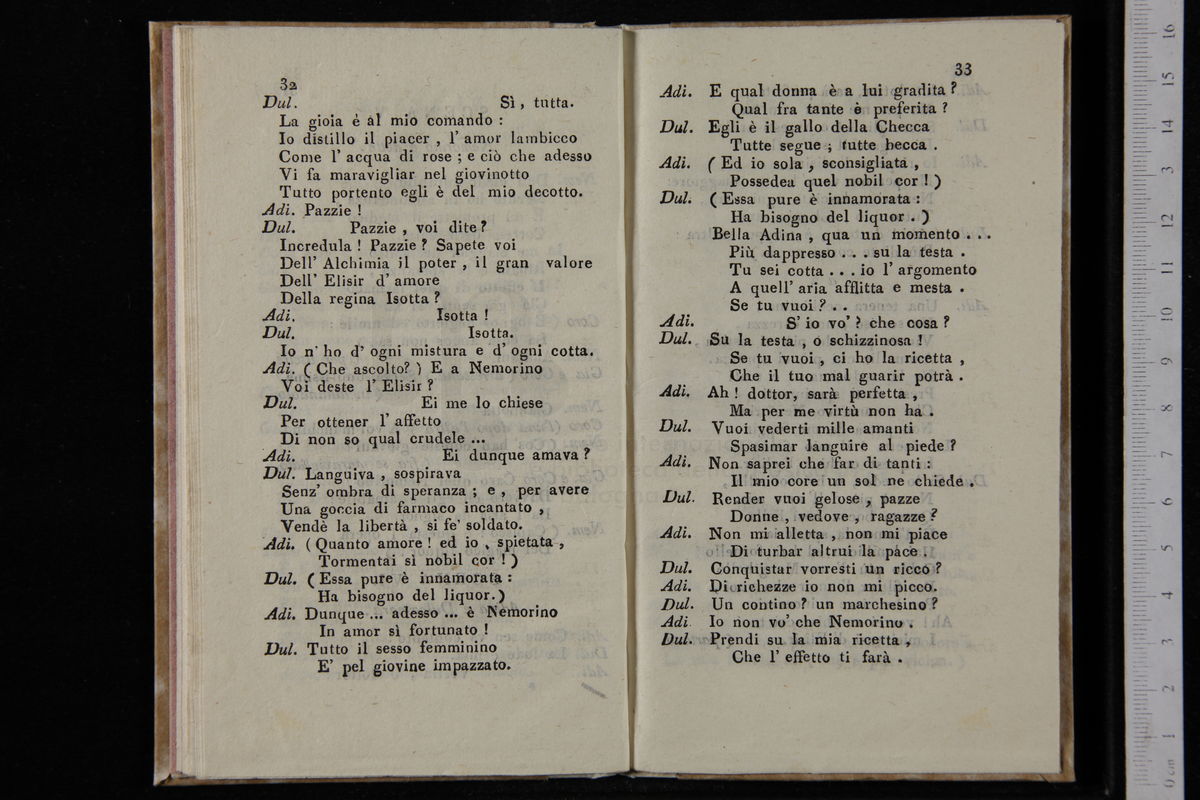 32
Dul. Sì, tutta.
La gioia è al mio comando :
Io distillo il piacer , l' amor lambicco
Come l' acqua di rose ; e ciò che adesso
Vi fa maravigliar nel giovinotto
Tutto portento egli è del mio decotto.
Adi. Pazzie !
Dul. Pazzie , voi dite ?
Incredula ! Pazzie ? Sapete voi
Dell' Alchimia il poter , il gran valore
Dell' Elisir d' amore
Della regina Isotta ?
Adi. Isotta !
Dul. Isotta.
Io n' ho d' ogni mistura e d' ogni cotta.
Adi. ( Che ascolto? ) E a Nemorino
Voi deste l' Elisir ?
Dul. Ei me lo chiese
Per ottener l' affetto
Di non so qual crudele ...
Adi. Ei dunque amava ?
Dul. Languiva , sospirava
Senz' ombra di speranza ; e , per avere
Una goccia di farmaco incantato ,
Vendè la libertà , si fe' soldato.
Adi. ( Quanto amore ! ed io , spietata ,
Tormentai sì nobil cor ! )
Dul. ( Essa pure è innamorata :
Ha bisogno del liquor.)
Adi. Dunque ... adesso ... è Nemorino
In amor sì fortunato !
Dul. Tutto il sesso femminino
E' pel giovine impazzato.
33
Adi. E qual donna è a lui gradita ?
Qual fra tante è preferita ?
Dul. Egli è il gallo della Checca
Tutte segue ; tutte becca .
Adi. ( Ed io sola , sconsigliata ,
Possedea quel nobil cor ! )
Dul. ( Essa pure è innamorata :
Ha bisogno del liquor . )
Bella Adina , qua un momento . . .
Più dappresso . . . su la testa .
Tu sei cotta . . . io l' argomento
A quell' aria afflitta e mesta .
Se tu vuoi ? . .
Adi. S' io vo' ? che cosa ?
Dul. Su la testa , o schizzinosa !
Se tu vuoi , ci ho la ricetta ,
Che il tuo mal guarir potrà .
Adi. Ah ! dottor, sarà perfetta ,
Ma per me virtù non ha .
Dul. Vuoi vederti mille amanti
Spasimar languire al piede ?
Adi. Non saprei che far di tanti :
Il mio core un sol ne chiede .
Dul. Render vuoi gelose , pazze
Donne , vedove , ragazze ?
Adi. Non mi alletta , non mi piace
Di turbar altrui la pace .
Dul. Conquistar vorresti un ricco ?
Adi. Di richezze io non mi picco.
Dul. Un contino ? un marchesino ?
Adi Io non vo' che Nemorino .
Dul. Prendi su la mia ricetta ,
Che l' effetto ti farà .
0 cm 1 2 3 4 5 6 7 8 9 10 11 12 13 14 15 16